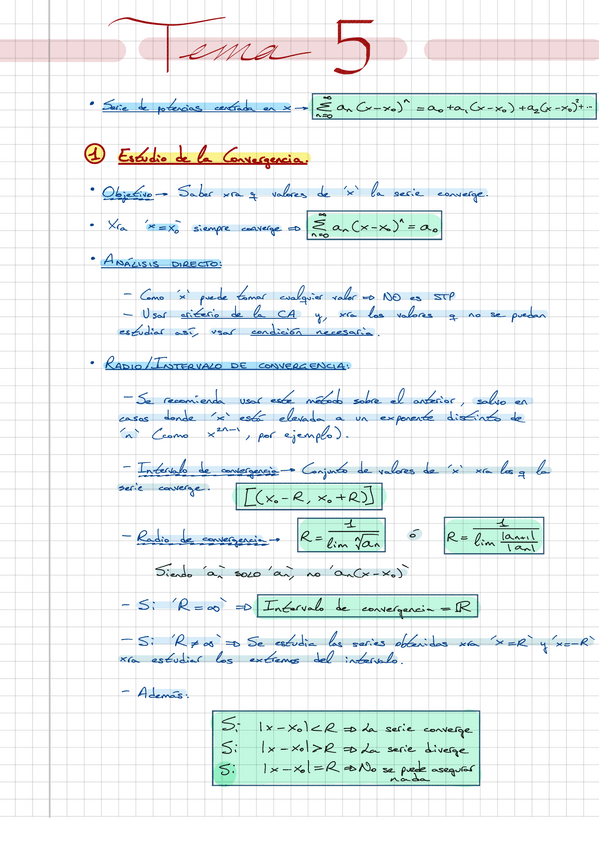 Tema 5
• Serie de potencias centrada en x → ∑_{n=0}^{∞} aₙ(x-x₀)ⁿ = a₀ + a₁(x-x₀) + a₂(x-x₀)² + ...
① Estudio de la Convergencia.
• Objetivo → Saber xra q valores de 'x' la serie converge.
• Xra 'x=x₀' siempre converge ⇒ ∑_{n=0}^{∞} aₙ(x-x₀)ⁿ = a₀
• ANÁLISIS DIRECTO:
- Como 'x' puede tomar cualquier valor ⇒ NO es STP
- Usar criterio de la CA y, xra los valores q no se puedan
estudiar así, usar condición necesaria.
• RADIO/INTERVALO DE CONVERGENCIA:
- Se recomienda usar este método sobre el anterior, salvo en
casos donde 'x' está elevada a un exponente distinto de
'n' (como x²ⁿ⁻¹, por ejemplo).
- Intervalo de convergencia → Conjunto de valores de 'x' xra los q la
serie converge. [(x₀-R, x₀+R)]
- Radio de convergencia → R = 1 / lim ⁿ√aₙ ó R = 1 / lim |aₙ₊₁|/|aₙ|
Siendo 'aₙ' SOLO 'aₙ', no 'aₙ(x-x₀)'
- Si 'R=∞' ⇒ Intervalo de convergencia = ℝ
- Si 'R≠∞' ⇒ Se estudia las series obtenidas xra 'x=R' y 'x=-R'
xra estudiar los extremos del intervalo.
- Además:
Si |x-x₀| < R ⇒ La serie converge
Si |x-x₀| > R ⇒ La serie diverge
Si |x-x₀| = R ⇒ No se puede asegurar
nada